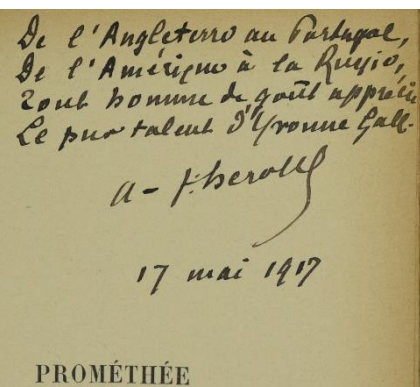 De l'Angleterre au Portugal,
De l'Amérique à la Russie,
Tout homme de goût apprécie
Le pur talent d'Yvonne Gall.
A-F. Herold
17 mai 1917
PROMÉTHÉE